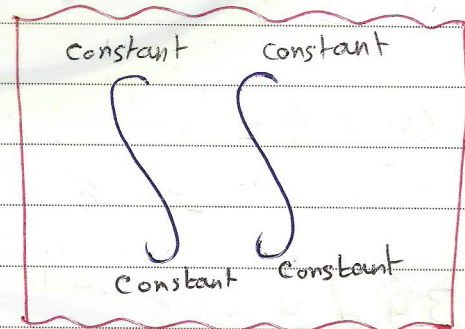 Constant Constant
∫ ∫
Constant Constant